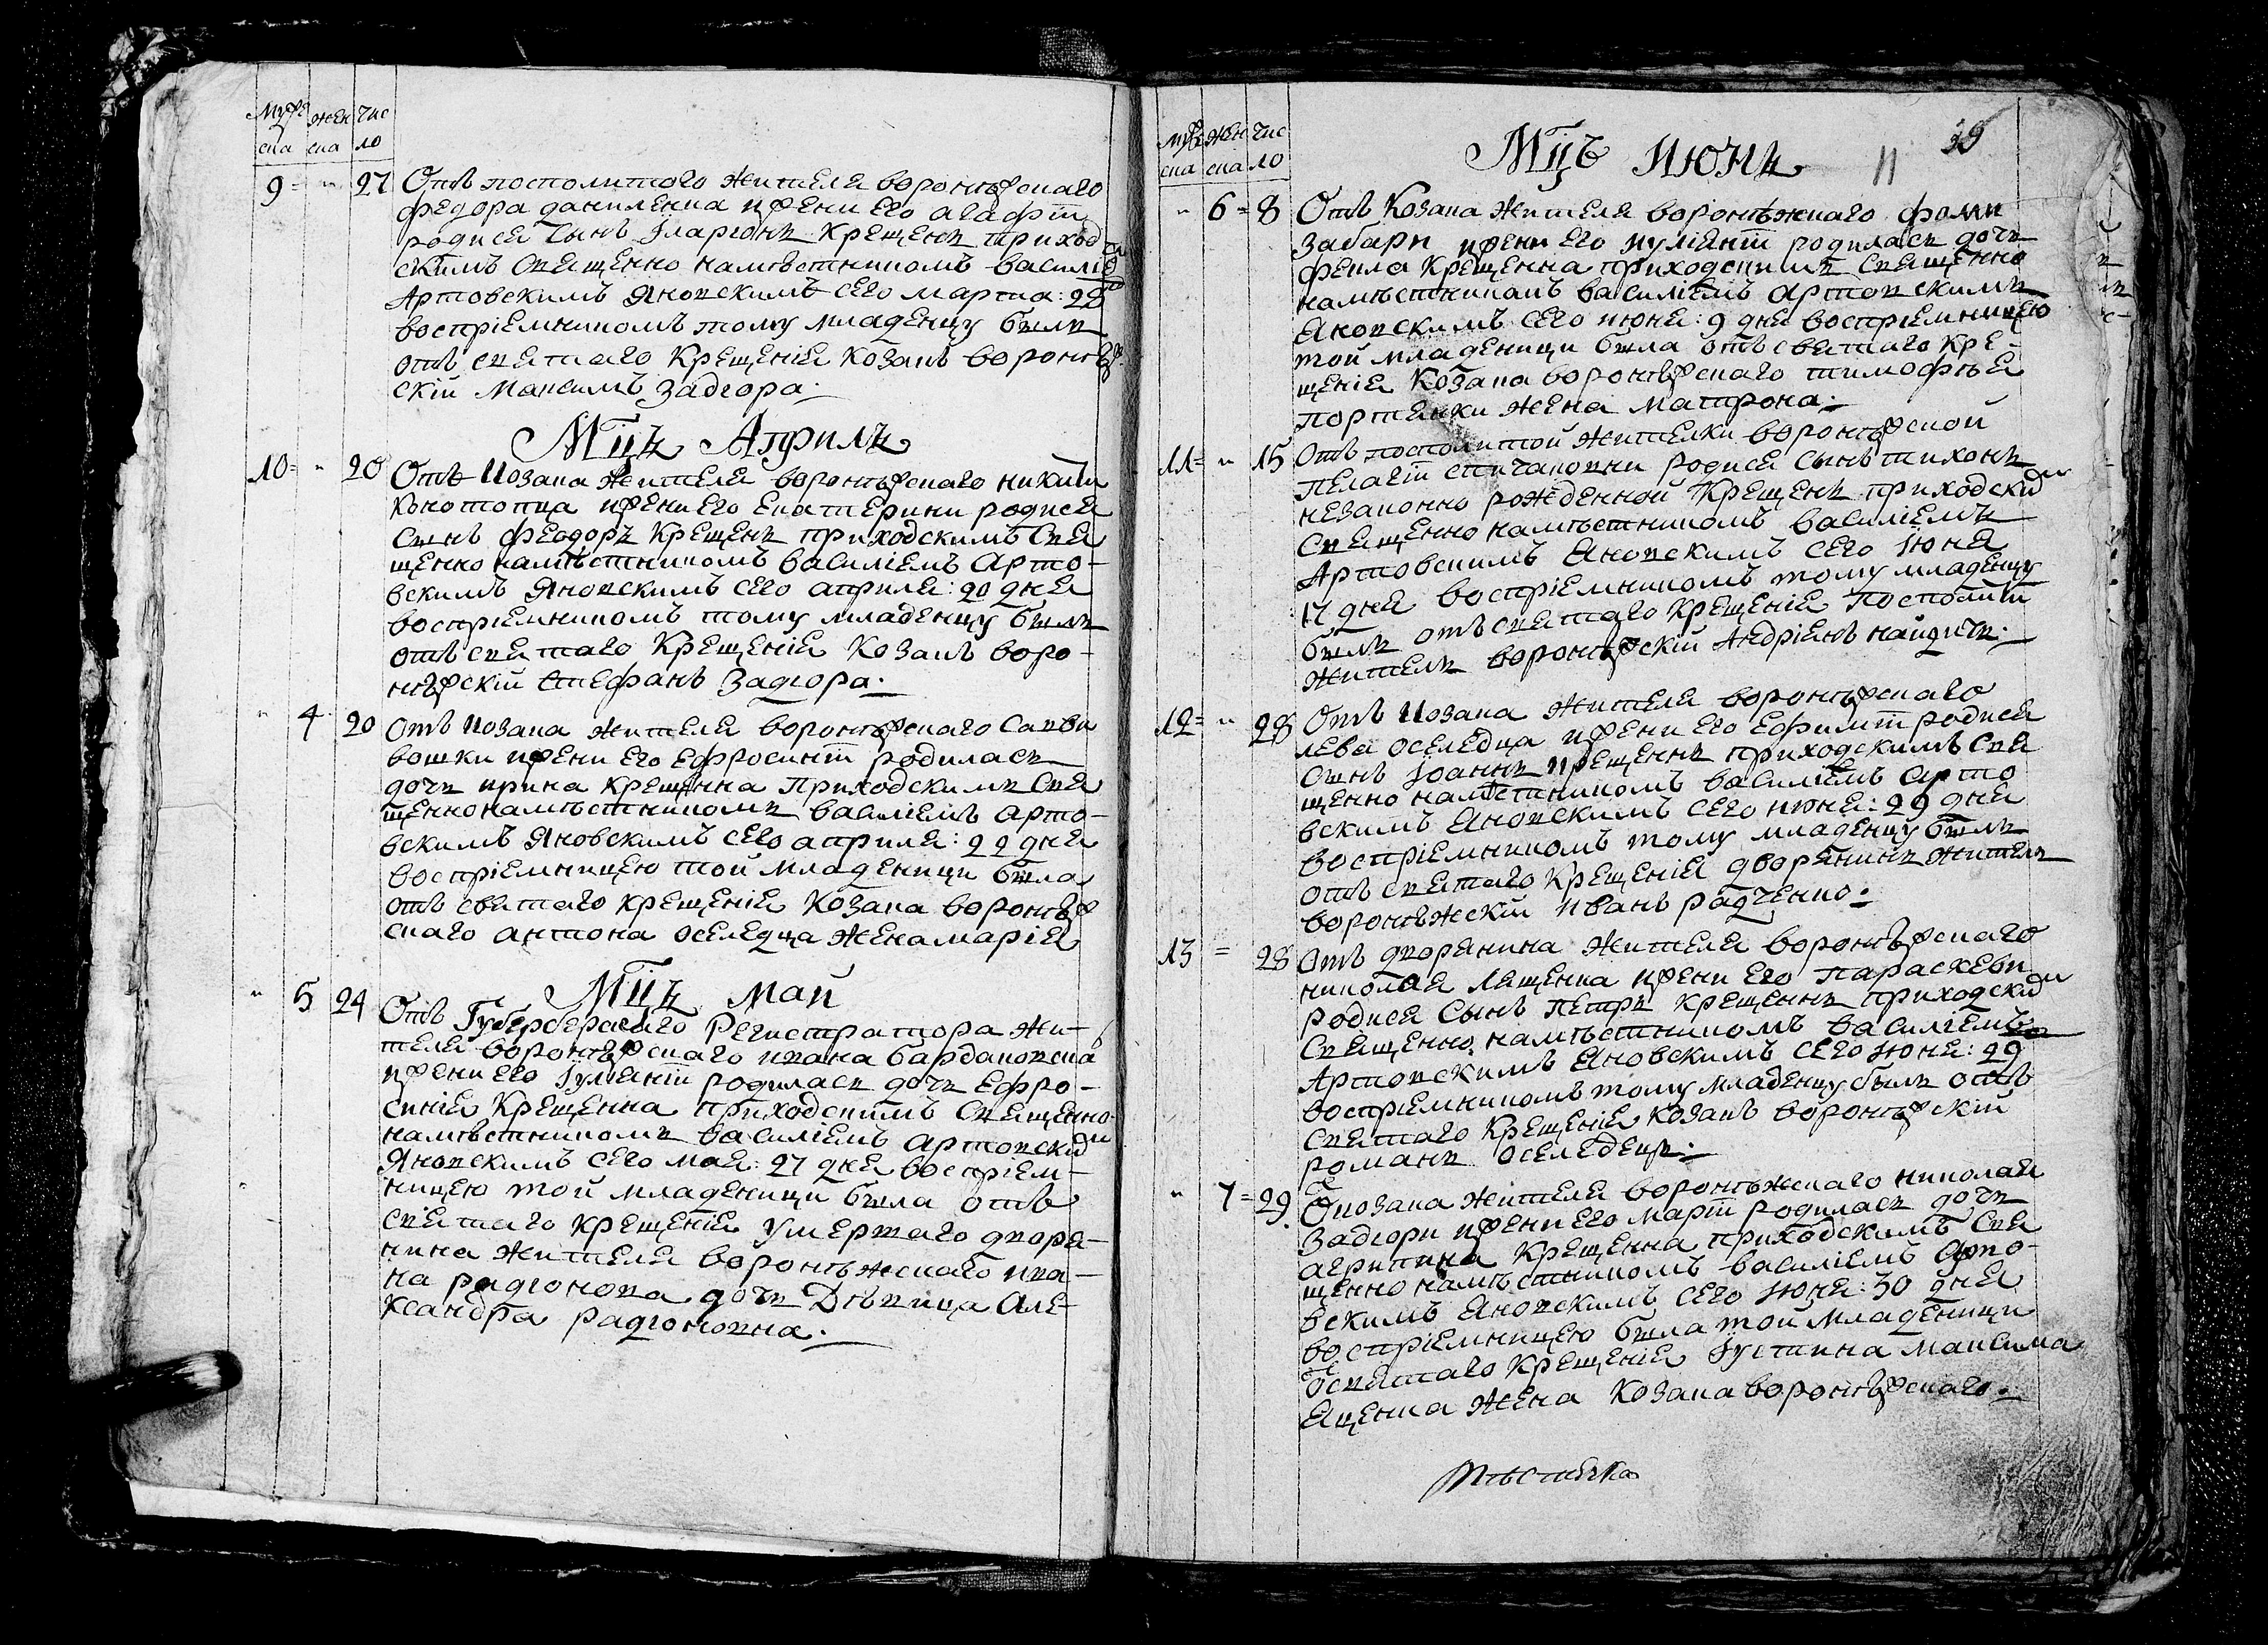 Муже жен чис
ска ска ло
9 = " 27 Отъ посполитого жителя воронѣжскаго
федора даниленка и жени его агафіи
родися сынъ Іларіонъ крещенъ приход
скимъ священно намѣстникомъ василіе
Артовскимъ Яновскимъ сего марта: 29
воспріемникомъ тому младенцу былъ
отъ святаго крещенія козакъ воронѣж
скій Максимъ Задіора.
Мцъ Априлъ
10 = " 20 Отъ козака жителя воронѣжскаго никити
конотопца и жени его екатерини родися
сынъ феодоръ крещенъ приходскимъ свя
щенно намѣстникомъ василіемъ Арто-
вскимъ Яновскимъ сего априля: 20 дня
воспріемникомъ тому младенцу былъ
отъ святаго крещенія козакъ воро-
нѣжскій Стефанъ Задіора.
" 4 20 Отъ козака жителя воронѣжскаго Савви
вошки и жени его Ефросиніи родиласъ
дочъ ирина крещенна приходскимъ свя
щенно намѣстникомъ василіемъ Арто-
вскимъ Яновскимъ сего априля: 22 дня
воспріемницею той младеници была
отъ святаго крещенія козака воронѣж
скаго антона оселедца жена марія
Мцъ май
" 5 24 Отъ Губернскаго Регистратора жи-
теля воронѣжскаго ивана бардаковска
и жени его Іуліаніи родиласъ дочъ Ефро-
синія крещенна приходскимъ священно
намѣстникомъ василіемъ артовским
Яновскимъ сего мая: 27 дня воспріем-
ницею той младеници была отъ
святаго крещенія умершаго дворя-
нина жителя воронѣжскаго ива-
на радіонова дочъ Дѣвица Але-
ксандра радіоновна.
Муже жен чис
ска ска ло
Мцъ июнъ 11 39
" 6 = 8 Отъ козака жителя воронѣжскаго фоми
забари и жени его иуліяніи родиласъ дочъ
фекла крещенна приходскимъ священно
намѣстникомъ василіемъ Артовскимъ
Яновскимъ сего июня: 9 дня воспріемницею
той младеници была отъ святаго кре-
щенія козака воронѣжскаго тимофѣя
портянки жена матрона.
11 = " 15 Отъ посполитой жителки воронѣжской
пелагіи родися сынъ тихонъ
незаконно рожденной крещенъ приходским
священно намѣстникомъ василіемъ
Артовскимъ Яновскимъ сего июня
17 дня воспріемникомъ тому младенцу
былъ отъ святаго крещенія посполити
жителъ воронѣжскій Андріянъ найдичъ.
12 = " 28 Отъ козака жителя воронѣжскаго
лева оселедца и жени его Ефиміи родися
сынъ Іоаннъ крещеннъ приходскимъ свя
щенно намѣстникомъ василіемъ Арто
вскимъ Яновскимъ сего июня: 29 дня
воспріемникомъ тому младенцу былъ
отъ святаго крещенія дворянинъ жителъ
воронѣжскій иванъ радченко.
13 = 28 Отъ дворянина жителя воронѣжскаго
николая лященка и жени его параскеви
родися сынъ петръ крещеннъ приходским
священно намѣстникомъ василіемъ
Артовскимъ Яновскимъ сего июня: 29
воспріемникомъ тому младенцу былъ отъ
святаго крещенія козакъ воронѣжскій
романъ оселедецъ.
" 7 = 29 От козака жителя воронѣжскаго николая
Задіори и жени его маріи родиласъ дочъ
агрипина крещенна приходскимъ свя
щенно намѣстникомъ василіемъ Арто-
вскимъ Яновскимъ сего июня: 30 дня
воспріемницею была той младеници
от святаго крещенія Іустина максима
яценка жена козака воронѣжскаго.